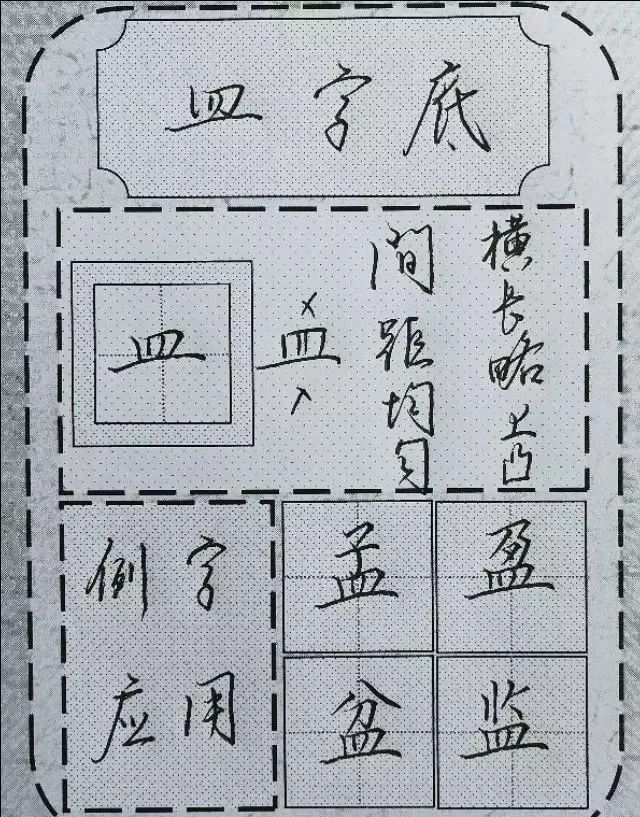 皿字底
横长略上凸
间距均匀
皿
皿
例字
应用
孟
盈
盆
监